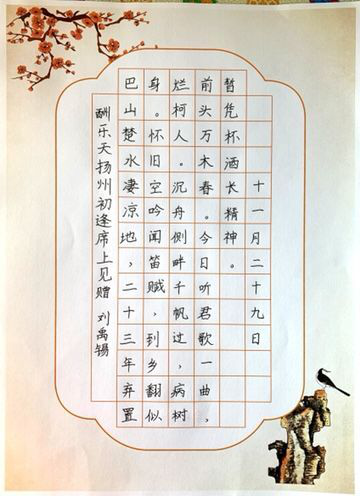 酬乐天扬州初逢席上见赠 刘禹锡
巴山楚水凄凉地，二十三年弃置
身。怀旧空吟闻笛赋，到乡翻似
烂柯人。沉舟侧畔千帆过，病树
前头万木春。今日听君歌一曲，
暂凭杯酒长精神。
十一月二十九日